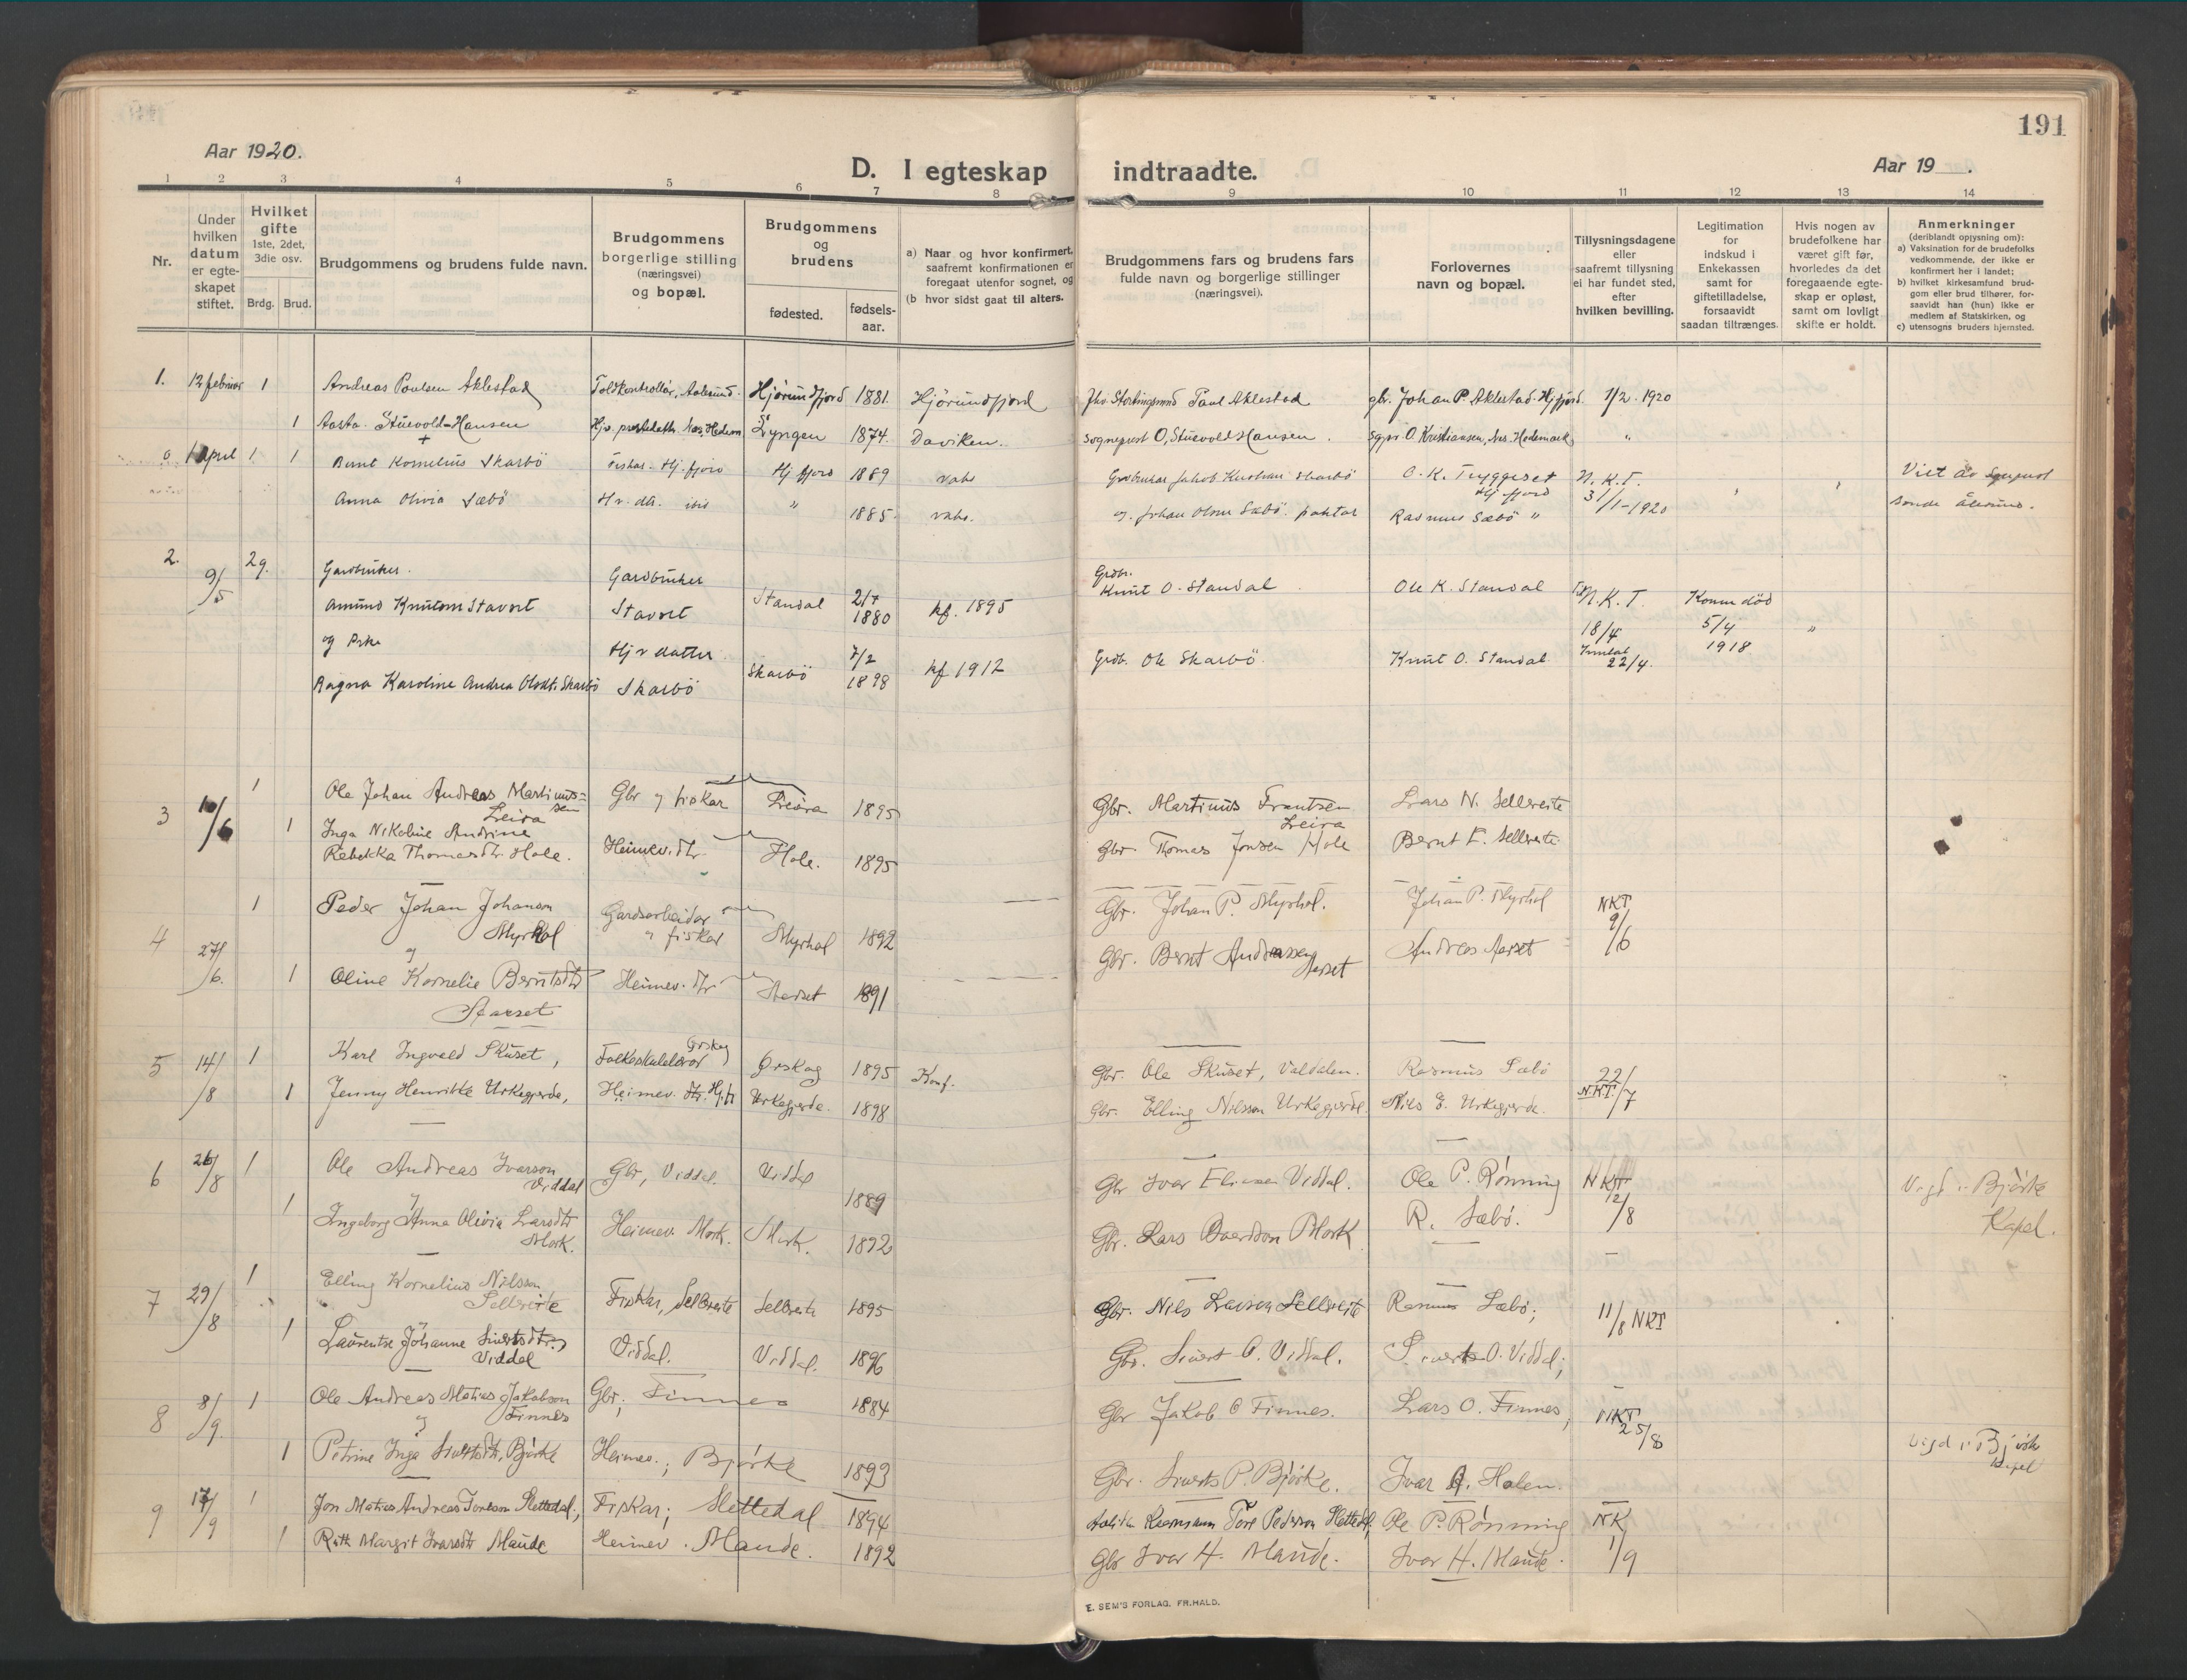 191
Aar 1920.
D. I egteskap indtraadte.
Aar 19 .
1 2 3 4 5 6 7 8 9 10 11 12 13 14
Nr.
Under hvilken datum er egte-skapet stiftet.
Hvilket gifte
1ste, 2det, 3die osv.
Brdg. Brud.
Brudgommens og brudens fulde navn.
Brudgommens borgerlige stilling (næringsvei) og bopæl.
Brudgommens og brudens
fødested. fødsels-aar.
a) Naar og hvor konfirmert, saafremt konfirmationen er foregaat utenfor sognet, og
(b hvor sidst gaat til alters.
Brudgommens fars og brudens fars fulde navn og borgerlige stillinger (næringsvei).
Forlovernes navn og bopæl.
Tillysningsdagene eller saafremt tillysning ei har fundet sted, efter hvilken bevilling.
Legitimation for indskud i Enkekassen samt for giftetilladelse, forsaavidt saadan tiltrænges.
Hvis nogen av brudefolkene har været gift før, hvorledes da det foregaaende egte-skap er opløst, samt om lovligt skifte er holdt.
Anmerkninger
(deriblandt opjysning om):
a) Vaksination for de brudefolks vedkommende, der ikke er konfirmert her i landet;
b) hvilket kirkesamfund brud-gom eller brud tilhører, for-saavidt han (hun) ikke er medlem af Statskirken, og
c) utensogns bruders hjemsted.
1. 12 februar 1 Andreas Paulsen Aklestad Toldkontrollør, Aalesund. Hjørundfjord 1881. Hjørundfjord Stortingsmd Paul Aklestad gbr. Johan P. Aklestad. Hj.fjord. 1/2. 1920
1 Aasta Stuevold-Hansen Næs, Hedem Lyngen 1874. Daviken. Sogneprest O, Stuevold Hansen. O. Kristiansen, Nes. Hedemark "
april 1 1 Bernt Kornelius Skarbö Fiskar. Hj.fjord Hj.fjord 1889 Jakob Skarbö O. K. Tryggeset Hj.fjord N. K. T. Viet av
Anna Olivia Sæbö H v. dtr. ibid " 1885. Johan Olsen Sæbö. Rasmus Sæbö " 31/1-1920
2. 9/5 2g. Gardbruker. Gardbruker Standal 21/7 1880 kf. 1895 Grdbr. Knut O. Standal Ole K. Standal N. K. T. 18/4 Konen död 5/4 1918 "
Amund Knutson Stavset Stavset
og Pike Hj v datter Skarbö 7/2 1898 kf 1912 Grdb. Ole Skarbö. Knut O. Standal 22/4.
Ragna Karoline Andrea Olsdt. Skarbö Skarbö
3 10/6 1 Ole Johan Andreas Martinus=sen Leira Gbr og fiskar Leira 1895 Gbr. Martinus Frantsen Leira Lars N. Sellereite
1 Inga Nikoline Andrine Rebekka Thomasdtr. Hole. Heimev. dtr. Hole. 1895 Gbr. Thomas Jonsen Hole Bernt E. Sellereite
4 27/6. 1 Peder Johan Johanson Myrhol Gardsarbeidar og fiskar Myrhol 1892 Gbr. Johan P. Myrhol. Johan P. Myrhol NKT 9/6
og
1 Oline Kornelie Berntsdtr Aarset Heimev. dtr Aarset 1891 Gbr. Bernt Andreassen Aarset Andreas Aarset
5 14/8 1 Karl Ingvald Skuset, Folkeskulelærar Ørskog Ørskog 1895 Konf. Gbr. Ole Skuset, Valdalen. Rasmus Sæbö 22/7 N.K.T.
1 Jenny Henrikke Urkegjerde, Heimev. dtr. Hj.fj Urkegjerde. 1898 Gbr. Elling Nilsson Urkegjerde. Nils E. Urkegjerde.
6 26/8 1 Ole Andreas Ivarson Viddal Gbr, Viddal. Viddal 1889 Gbr Ivar Eliasen Viddal. Ole P. Rønning NKT 12/8 Vigd i Bjørke Kapel.
1 Ingeborg Anna Olivia Larsdtr Mork. Heimev. Mork. Mork. 1892 Gbr. Lars Baardson Mork R. Sæbö.
7 29/8 1 Elling Kornelius Nilsson Sellereite Fiskar, Sellereite Sellereite 1895 Gbr. Nils Larsen Sellereite Rasmus Sæbö; 11/8 NKT
1 Laurentse Johanne Sivertsdtr. Viddal Viddal. Viddal. 1896 Gbr. Sivert O. Viddal. Sivert O. Viddal;
8 8/9. 1 Ole Andreas Matias Jakobson Finnes Gbr; Finnes 1884 Gbr Jakob O Finnes. Lars O. Finnes, NKT 25/8
og
1 Petrine Inga Sivertsdtr, Bjørke Heimev.; Bjørke 1893 Gbr. Siverts P. Bjørke. Ivar A. Holen. Vigd i Bjørke kapel
9 17/9 1 Jon Matias Andreas Toreson Slettedal, Fiskar; Slettedal 1894 Tore Pederson Slettedal, Ole P. Rønning NK 1/9
1 Rutt Margit Ivarsdtr Maude Heimev. Maude. 1892 Gbr Ivar H. Maude. Ivar H. Maude.
E. SEM'S FORLAG. FR.HALD.